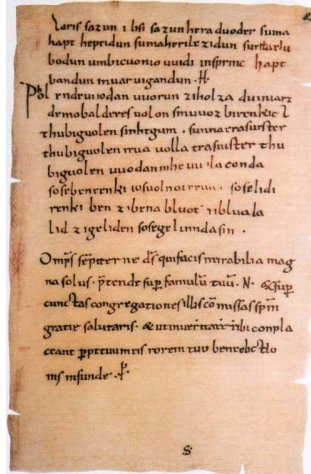 Eiris sazun idisi sazun hera duoder suma
hapt heptidun sumaherilezidun sumaclu
bodun umbicuonio uuidi insprinc hapt
bandun inuar uigandun· H·
Phol endeuuodan uuorun ziholza du uuart
demobalderes uolon sinuuoz birenkict
thubiguolen sinhtgunt · sunnaerasuister
thubiguolen friia uolla erasuister thu
biguolen uuodan sohe uuola conda
sosebenrenki sosebluotrenki soselidi
renki ben zibena bluot zibluoda
lid zigeliden sosegelimida sin·
Omp̄s sēpiterne d̄s qui facis mirabilia mag
na solus · p̄tende sup famulū tuū · N· & sup
cunctas congregationes illis cōmissas sp̄m
gratie salutaris · & utinueritate tibi compla
ceant ppetuum eis rorem tuę benedictio
nis infunde · p·
S